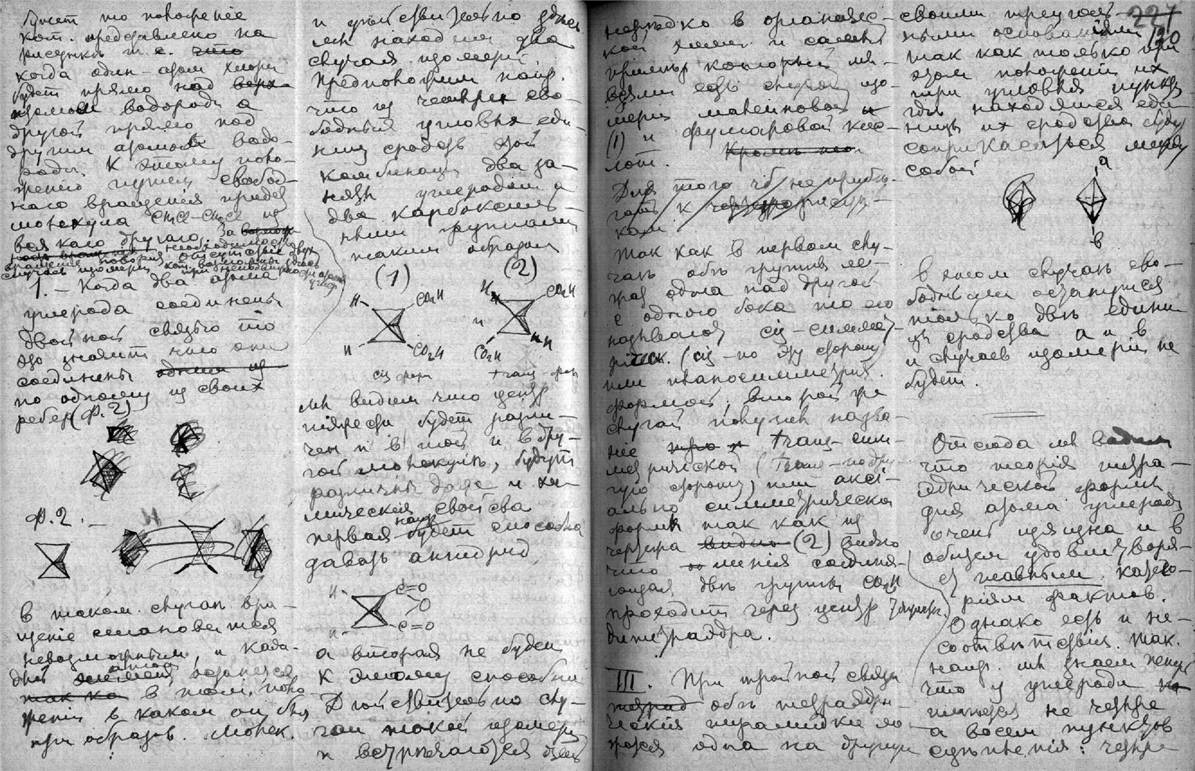 будет то положеніе
кот. представлено на
рисункѣ т.е. что
когда один атом хлора
будет прямо над
атомом водорода а
другой прямо под
другим атомом водо-
рода. К этому поло-
женію путем свобод-
наго вращенія придет
молекула CH₂Cl-CH₂Cl из
всякаго другаго.
1. - Когда два атома
углерода соединены
двойной связью то
это значит что они
соединены
по одному из своих
ребер (Ф. 2)
Ф. 2. -
в таком случаѣ вра-
щеніе становится
невозможным, и каж-
дый атом остается
в том поло-
женіи в каком он был
при образ. молек.
и действительно здѣсь
мы находим два
случая изомеріи.
Предположим напр.
что из четырех сво-
бодных угловых еди-
ниц сродств этой
комбинаціи два за-
няты углеродом и
два карбоксиль-
ными группами
таким образом
(1) (2)
H CO₂H H CO₂H
и
H CO₂H CO₂H H
cis форм trans форм
мы видим что центр
тяжести будет разли-
чен и в той и в дру-
гой молекулѣ, будут
различны даже и хи-
мическія свойства
первая будет способна
давать ангидрид
H C=O
O
H C=O
а вторая не будет
к этому способна
Действительно слу-
чаи такой изомеріи
и встрѣчаются весьма
нерѣдко в органичес-
кой химіи и самый
примѣр который мы
взяли есть случай изо-
меріи малеиновой
(1) и фумаровой кис-
лот.
Для того чтб не прибѣ-
гать к
Так как в первом слу-
чаѣ обѣ группы ле-
жат одна над другой
с одного бока то его
называют cis-симмет-
рическ. (cis - по эту сторону)
или планосимметрич.
формой, второй же
случай получил назва-
ніе trans-сим-
метрической (Trans - по дру-
гую сторону) или аксі-
ально симметрической
формы так как из
чертежа (2) видно
что линія соединя-
ющая двѣ группы CO₂H
проходит через центр
битетраэдра.
III. При тройной связи
обѣ тетраэдри-
ческія пирамидки ло-
жатся одна на другую
221
20
своими треуголь-
ными основаніями
так как только при
этом положеніи их
три угловых пункта
гдѣ находятся еди-
ницы их сродства будут
соприкасаться между
собой
а
в
в таком случаѣ сво-
бодными останутся
только двѣ едини-
цы сродства а и в
и случаев изомеріи не
будет.
Отсюда мы видим
что теорія тетра-
эдрической формы
для атома углерода
очень изящна и в
общем удовлетворя-
ет главным катего-
ріям фактов.
Однако есть и не-
соотвѣтствія. Так
напр. мы знаем теперь
что у углерода
имѣются не четыре
а восем пунктов
сцѣпленія: четыре